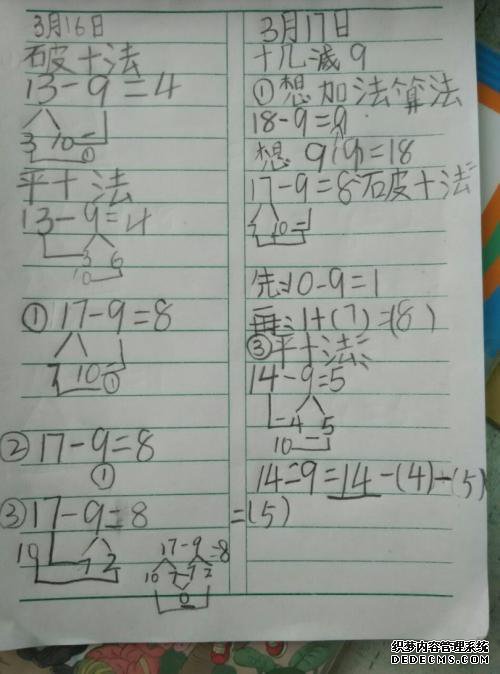 3月16日
破十法
13-9=4
3 10
①
平十法
13-9=4
3 6
10
①17-9=8
7 10
①
②17-9=8
①
③17-9=8
10 7 2
17-9=8
10 7 7 2
0
3月17日
十几减9
①想加法算法
18-9=9
想 9(9)=18
17-9=8破十法
7 10
先:10-9=1
再:1+(7)=(8)
③平十法
14-9=5
4 5
10
14-9=14-(4)-(5)
=(5)
脚本之家内容管理系统